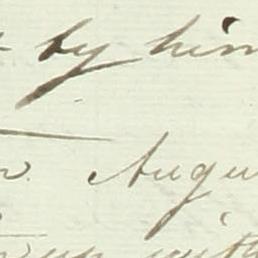 by him
Augu
with